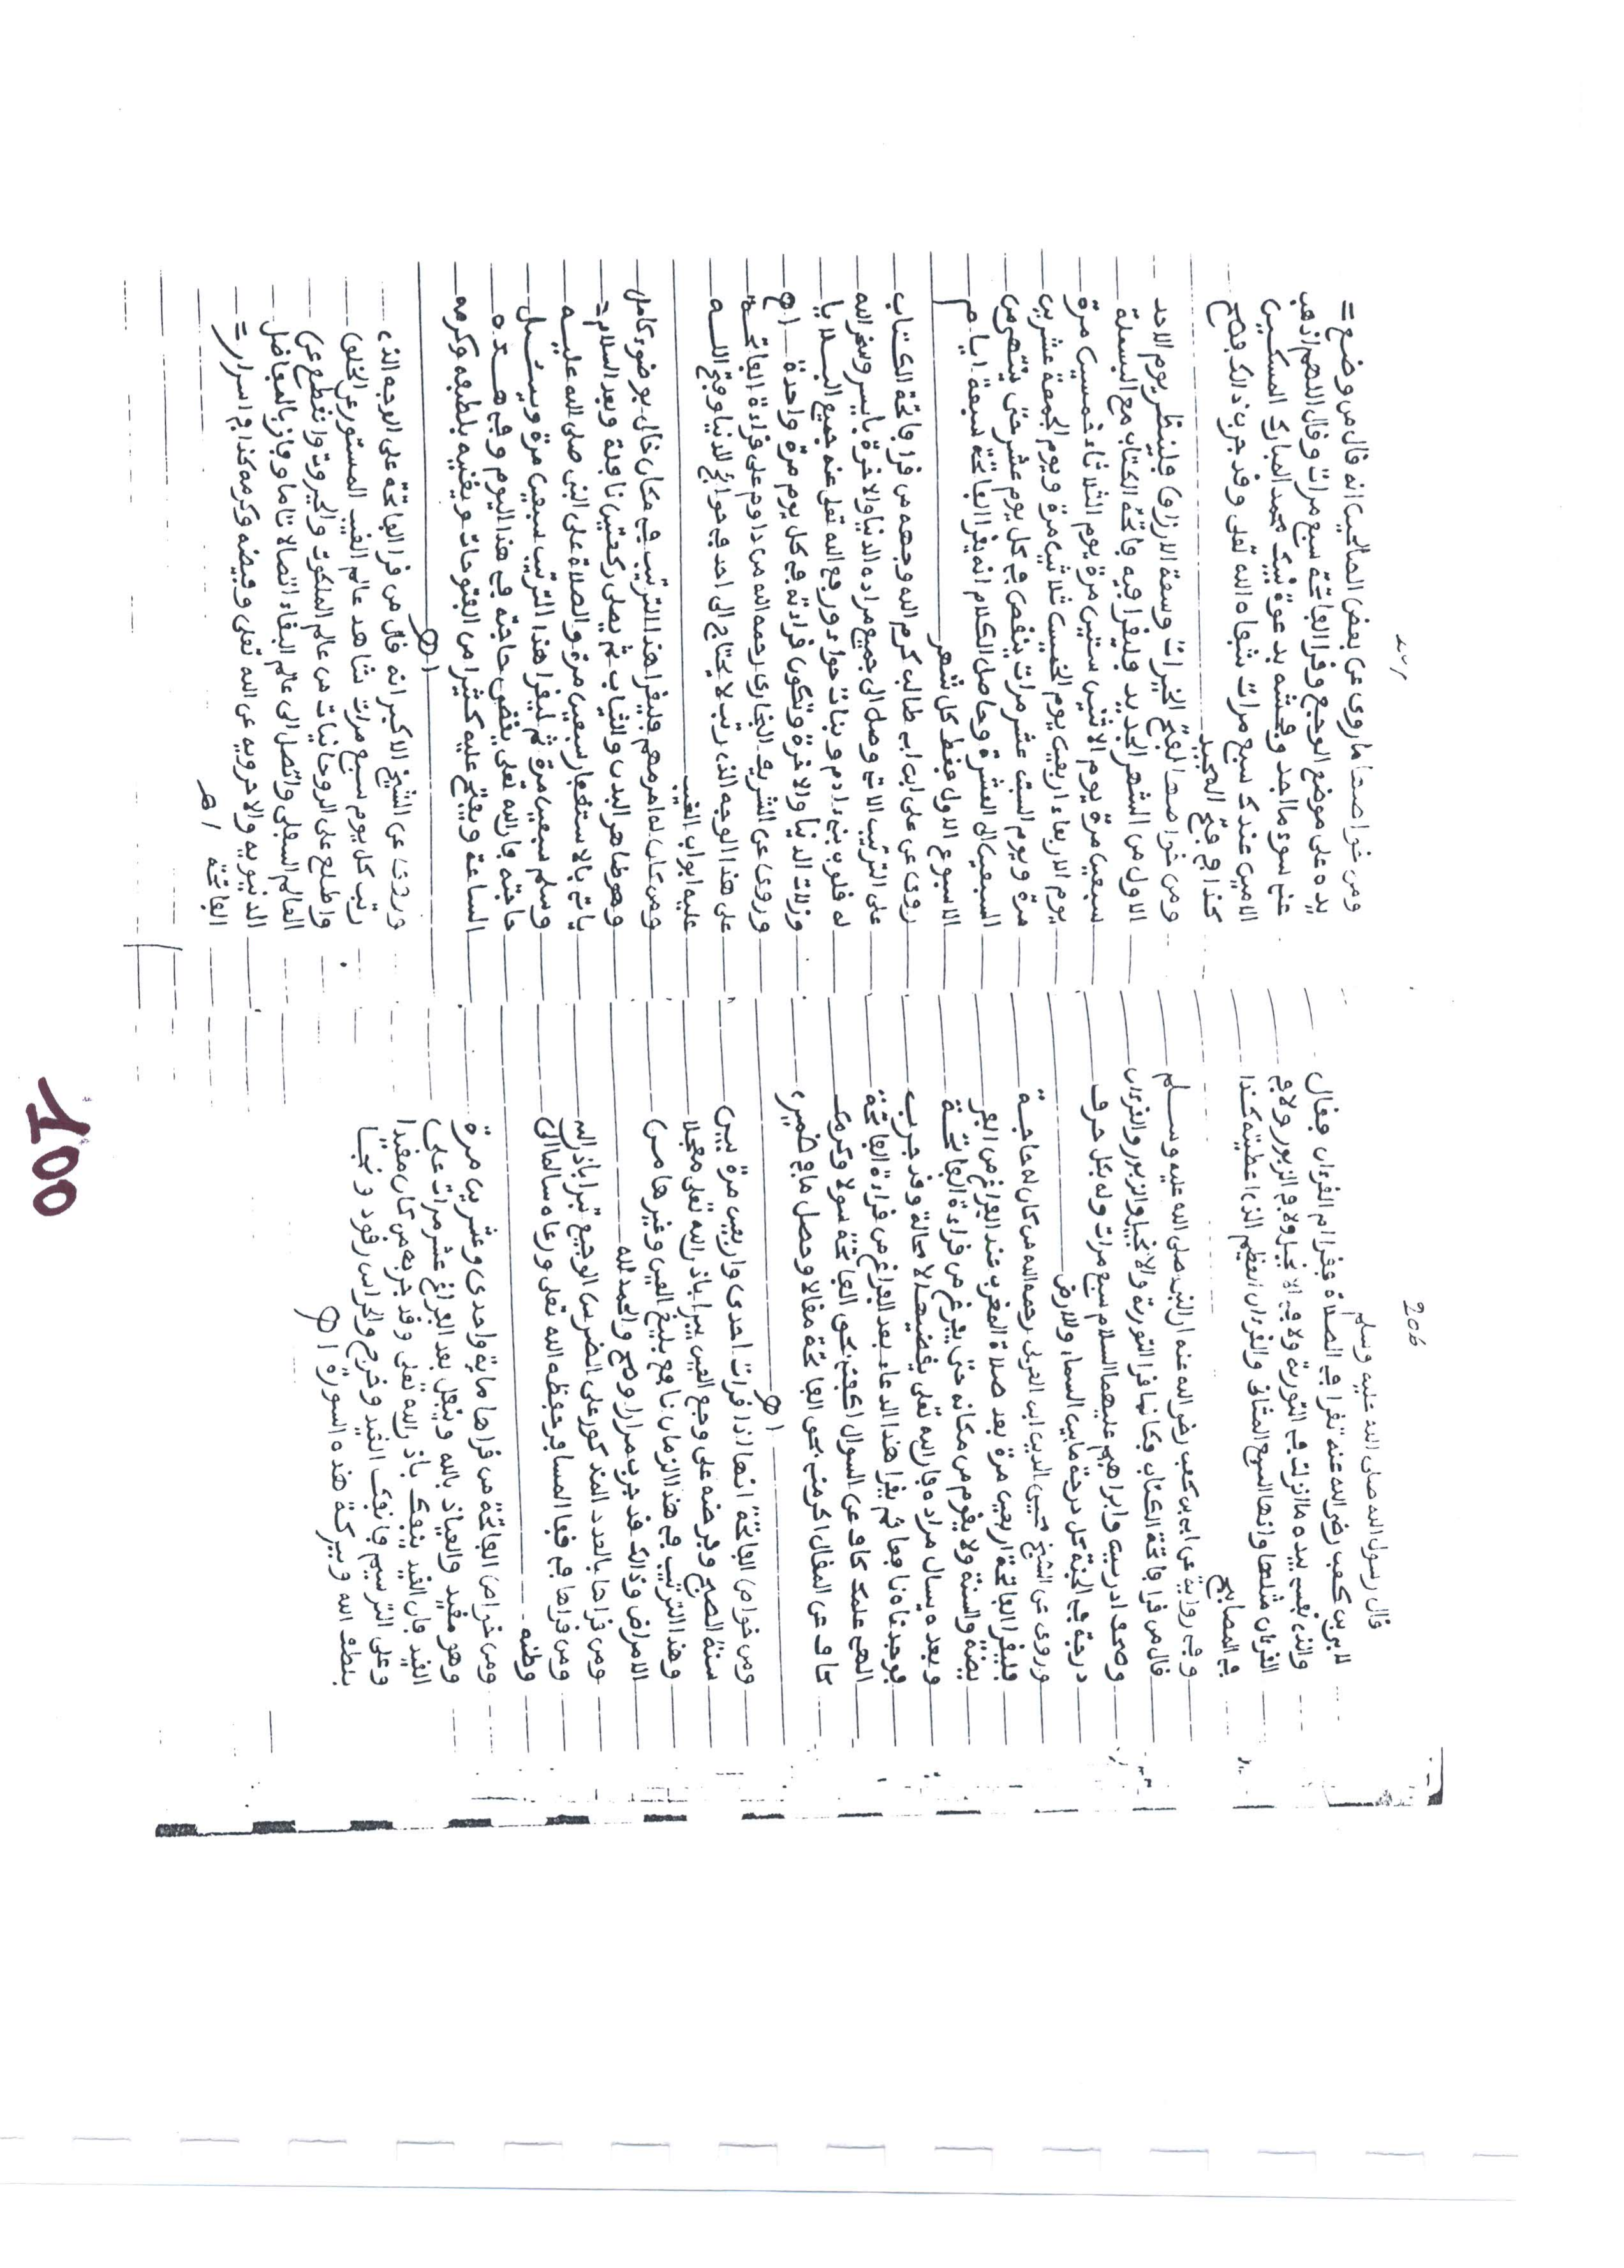 206
قال رسول الله صلى الله عليه وسلم
لابي بن كعب رضي الله عنه تقرا في الصلاة فقرا ام القرءان فقال
والذي نفسي بيده ما انزلت في التورية ولا في الانجيل ولا في الزبور ولا في
القرءان مثلها وانها السبع المثاني والقرءان العظيم الذي اعطيته كذا
في المصابيح
وفي رواية عن ابي بن كعب رضي الله عنه ان النبي صلى الله عليه وسلم
قال من قرا فاتحة الكتاب فكانما قرا التورية والانجيل والزبور والقرءان
وصحف ادريس وابراهيم عليهما السلام سبع مرات وله بكل حرف
درجة في الجنة كل درجة ما بين السماء والارض
وروي عن الشيخ محيي الدين ابن العربي رحمه الله من كان له حاجة
فليقرا الفاتحة اربعين مرة بعد صلاة المغرب عند الفراغ من الفر
يضة والسنة ولا يقوم من مكانه حتى يفرغ من قراءة الفاتحة
وبعده يسال مراده فان الله تعلى يقضيها لا محالة وقد جرب
فوجدناه نافعا ثم يقرا هذا الدعاء بعد الفراغ من قراءة الفاتحة
الهي علمك كاف عن السوال اكفني بحق الفاتحة سولا وكرمك
كاف عن المقال اكرمني بحق الفاتحة مقالا وحصل ما في ضميري
اهـ
ومن خواص الفاتحة انها اذا قرات احدى واربعين مرة بين
سنة الصبح وفرضه على وجع العين يبرا باذن الله تعلى معجلا
وهذا الترتيب في هذا الزمان نافع بليغ للعين وغيرها من
الامراض وذالك قد جرب مرارا وصح والحمد لله
ومن قراها بالعدد المذكور على الضرس الوجيع تبرا باذن الله
ومن قراها في قفا المسافر حفظه الله تعلى ورعاه سالما الى
وطنه
ومن خواص الفاتحة من قراها ماية واحدى وعشرين مرة
وهو مقيد والعياذ بالله ويتفل بعد الفراغ عشر مرات على
القيد فان القيد ينفك باذن الله تعلى وقد جربه من كان مقيدا
وعلى الترسيم فانفك القيد وخرج والحراس رقود ونجا
بلطف الله وببركة هذه السورة اهـ
ومن خواصها ما روي عن بعض الصالحين انه قال من وضع
يده على موضع الوجع وقرا الفاتحة سبع مرات وقال اللهم اذهب
عني سوء ما اجد وفحشه بدعوة نبيك محمد المبارك المسكين
الامين عندك سبع مرات شفاه الله تعلى وقد جرب ذالك فصح
كذا في فتح المجيد
ومن خواصها لفتح الخيرات وسعة الارزاق فلينظر يوم الاحد
الاول من الشهر الجديد فليقرا فيه فاتحة الكتاب مع البسملة
سبعين مرة يوم الاثنين ستين مرة يوم الثلاثاء خمسين مرة
يوم الاربعاء اربعين يوم الخميس ثلاثين مرة ويوم الجمعة عشرين
مرة ويوم السبت عشر مرات ينقص في كل يوم عشر حتى ينتهي من
السبعين الى العشرة وحاصل الكلام انه يقرا الفاتحة سبعة ايام
الاسبوع الاول فقط كل شهر
روي عن علي ابن ابي طالب كرم الله وجهه من قرا فاتحة الكتاب
على الترتيب الاتي وصل الى جميع مراده الدنيا والاخرة بايسر وسخر الله
له قلوب بني ءادم وبنات حواء ورفع الله تعلى عنه جميع البلايا
وزلات الدنيا والاخرة وتكون قراءته في كل يوم مرة واحدة اهـ
وروي عن الشريف البخاري رحمه الله من داوم على قراءة الفاتحة
على هذا الوجه الذي رتب لا يحتاج الى احد في حوائج الدنيا وفتح الله
عليه ابواب الغيب
ومن كان له امر مهم فليقرا هذا الترتيب في مكان خال بوضوء كامل
وهو طاهر البدن والثياب ثم يصلي ركعتين نافلة وبعد السلام
ياتي بالاستغفار سبعين مرة والصلاة على النبي صلى الله عليه
وسلم سبعين مرة ثم ليقرا هذا الترتيب سبعين مرة ويسئل
حاجته فان الله تعلى يقضي حاجته في هذا اليوم وفي هذه
الساعة ويفتح عليه كثيرا من الفتوحات ويغنيه بلطفه وكرمه
اهـ
وروي عن الشيخ الاكبر انه قال من قرا الفاتحة على الوجه الذي
رتب كل يوم سبع مرات شاهد عالم الغيب المستور عن الخلق
واطلع على الروحانيات من عالم الملكوت والجبروت وانقطع عن
العالم السفلي واتصل الى عالم البقاء اتصالا تاما وفاز بالمفاضل
الدنيوية والاخروية عن الله تعلى وفيضه وكرمه كذا في اسرار
الفاتحة اهـ
100